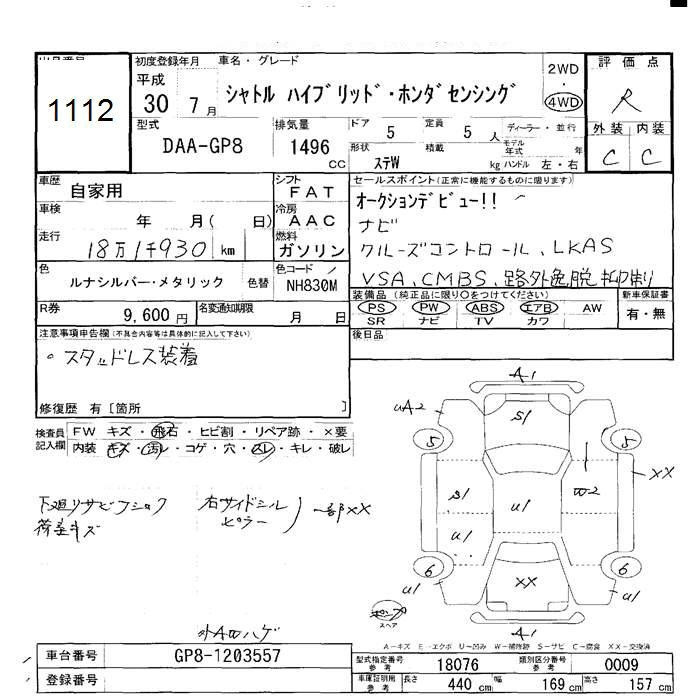 1112
初度登録年月
平成
30 7 月
車名・グレード
シャトル ハイブリッド・ホンダセンシング
2WD
・
4WD
評価点
R
外装 内装
C C
型式
DAA-GP8
排気量
1496
CC
ドア
5
定員
5 人
ディーラー・並行
形状
ステW
積載
kg
モデル年式
年
ハンドル 左・右
車歴
自家用
シフト
FAT
車検
年 月( 日)
冷房
AAC
走行
18万1千930 km
燃料
ガソリン
色
ルナシルバー・メタリック
色替
色コード
NH830M
R券
9,600 円
名変通知期限
月 日
セールスポイント(正常に機能するものに限ります)
オークションデビュー!!
ナビ
クルーズコントロール、LKAS
VSA、CMBS、路外逸脱抑制
装備品 (純正品に限り○をつけてください)
PS PW ABS エアB AW
SR ナビ TV カワ
新車保証書
有・無
後日品
注意事項申告欄(不具合内容等は具体的に記入して下さい)
。スタッドレス装着
修復歴 有 [箇所 ]
検査員
記入欄
FW キズ・飛石・ヒビ割・リペア跡・×要
内装 キズ・汚レ・コゲ・穴・スレ・キレ・破レ
下廻リサビフショク
荷室キズ
右サイドシル
ピラー
一部XX
A1
UA2
S1
5
5
XX
S1
U1
W2
U1
6
6
U1
XX
U1
スペア
A1
A-キズ E-エクボ U-凹み W-補修跡 S-サビ C-腐食 XX-交換済
車台番号
GP8-1203557
登録番号
型式指定番号
参考
18076
類別区分番号
参考
0009
車庫証明用
参考
長さ
440 cm
幅
169 cm
高さ
157 cm